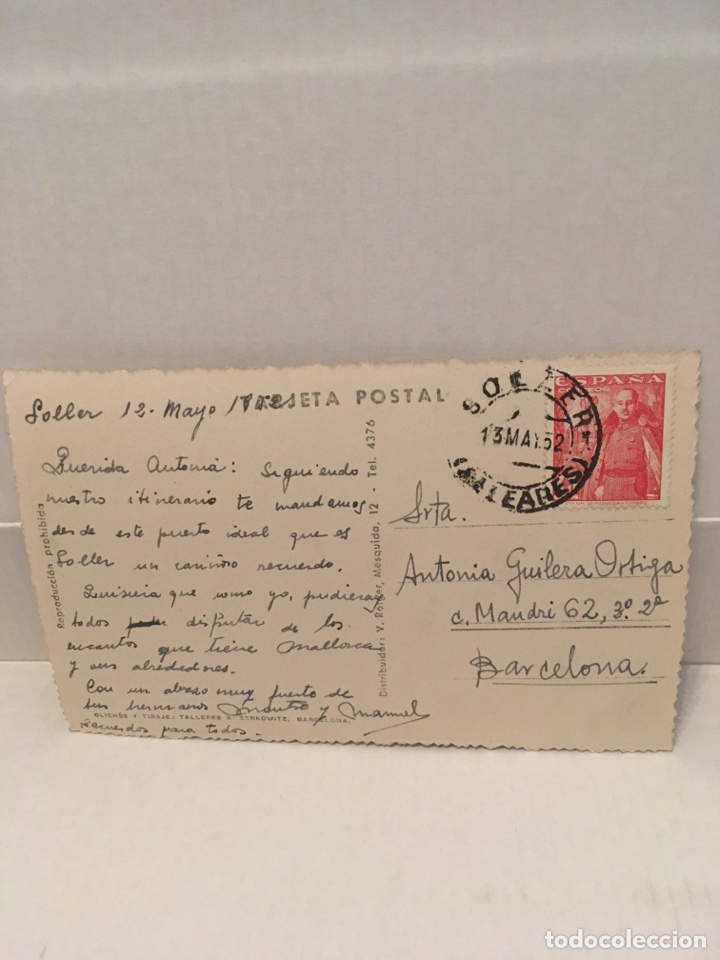 TARJETA POSTAL
Soller 12 - Mayo
Querida Antonia: Siguiendo
nuestro itinerario te mandamos
desde de este puerto ideal que es
Soller un cariñoso recuerdo.
Quisiera que como yo, pudieran
todos disfrutar de los
encantos que tiene Mallorca
y sus alrededores.
Con un abrazo muy fuerte de
tus hermanos Montse y Manuel
CLICHÉS Y TIRAJE: TALLERES A. ZERKOWITZ, BARCELONA.
Recuerdos para todos.
Reproducción prohibida
Distribuidor: V. Rotger, Mesquida, 12 - Tel. 4376
SOLLER
13 MAY 52
(BALEARES)
ESPAÑA
CORREOS
Srta.
Antonia Guilera Ortiga
c. Mandri 62, 3º 2ª
Barcelona.
todocoleccion